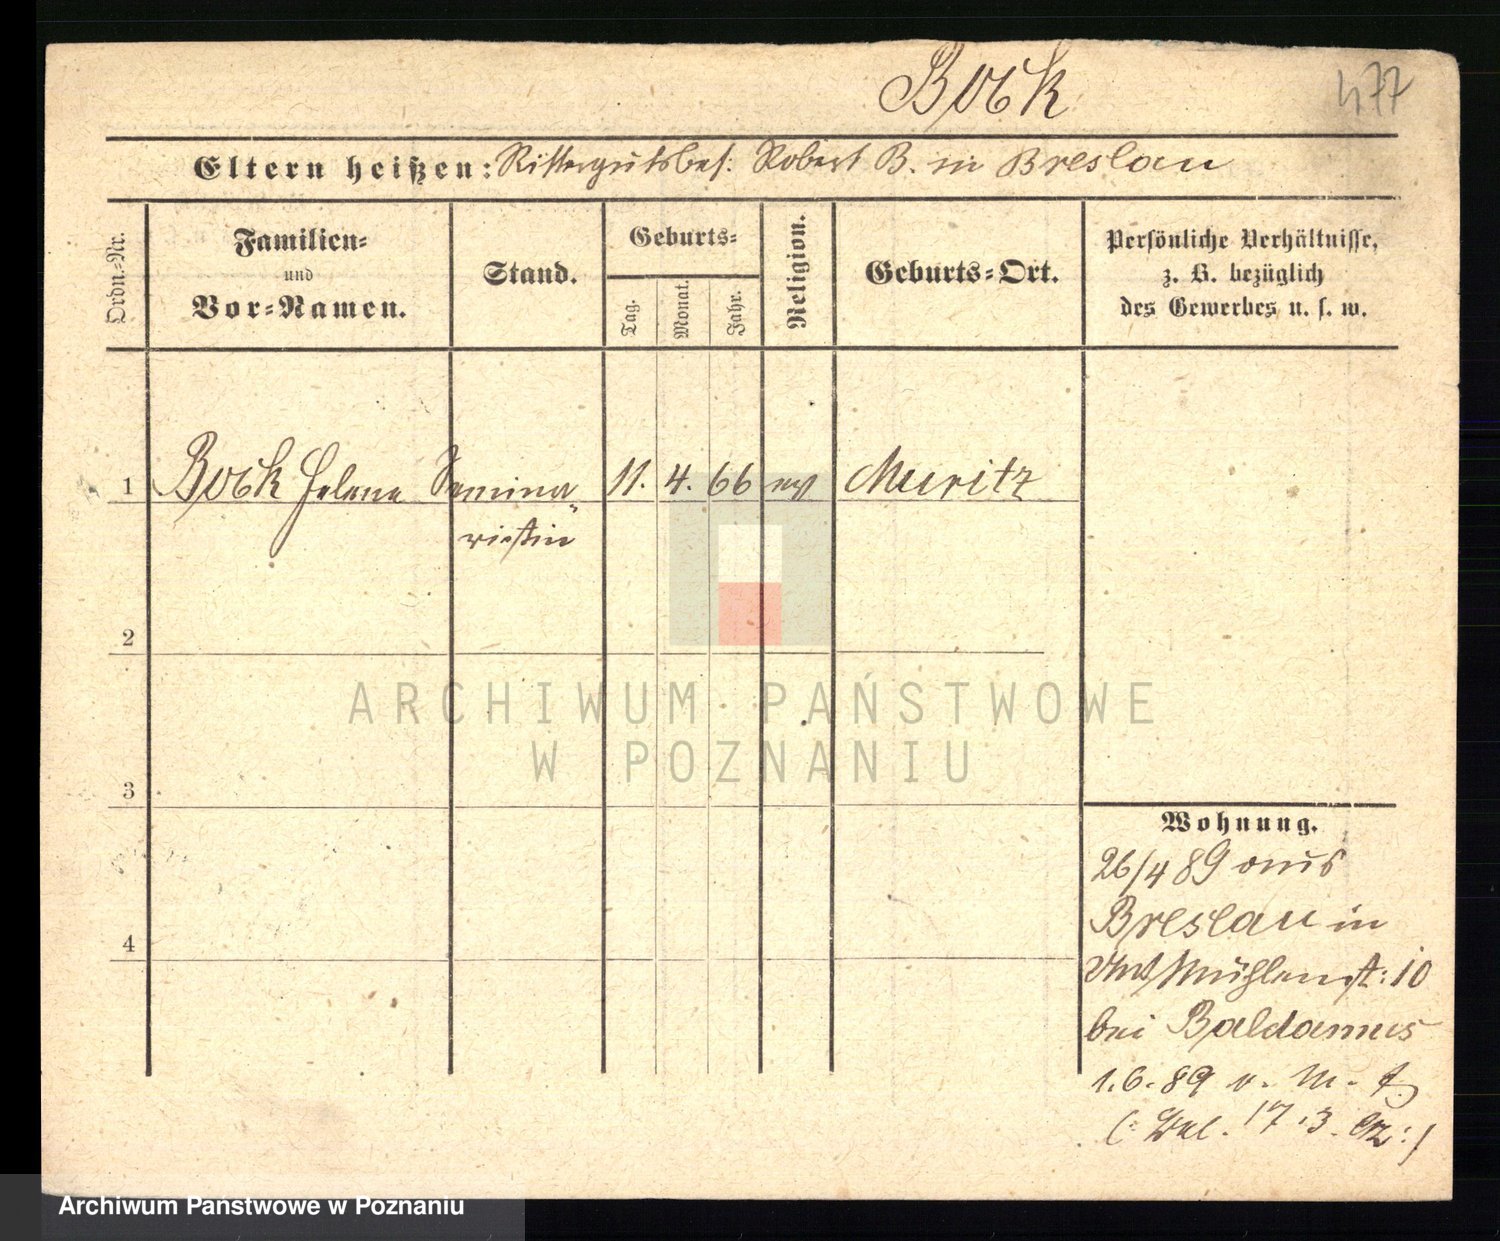 Bock
477
Eltern heißen: Rittergutsbes: Robert B. in Breslau
Ordn.-Nr.
Familien-
und
Vor-Namen.
Stand.
Geburts-
Tag.
Monat.
Jahr.
Religion.
Geburts-Ort.
Persönliche Verhältnisse,
z. B. bezüglich
des Gewerbes u. s. w.
1 Bock Helene Semina- 11. 4. 66 ev Muritz
ristin
2
3
4
Wohnung.
26/4 89 aus
Breslau in
Mühlenst: 10
bei Baldamus
1.6.89 v. M.
17.3.
ARCHIWUM PAŃSTWOWE
W POZNANIU
Archiwum Państwowe w Poznaniu